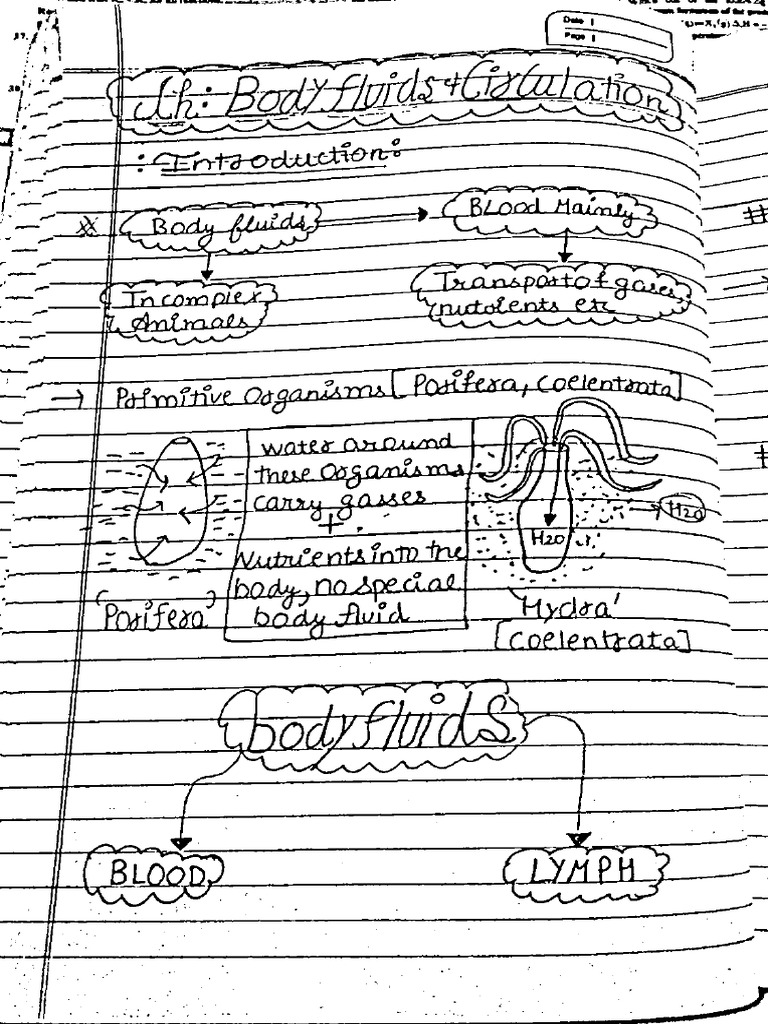 Date |
Page |
Ch: Body fluids & Circulation
:Introduction:
Body fluids
Blood Mainly
In complex
Animals
Transport of gases,
nutrients etc
→ Primitive organisms [Porifera, Coelentrata]
water around
these organisms
carry gasses
+
Nutrients into the
body, no special
body fluid
H2O
H2O
'Porifera'
'Hydra'
[Coelentrata]
body fluids
BLOOD
LYMPH